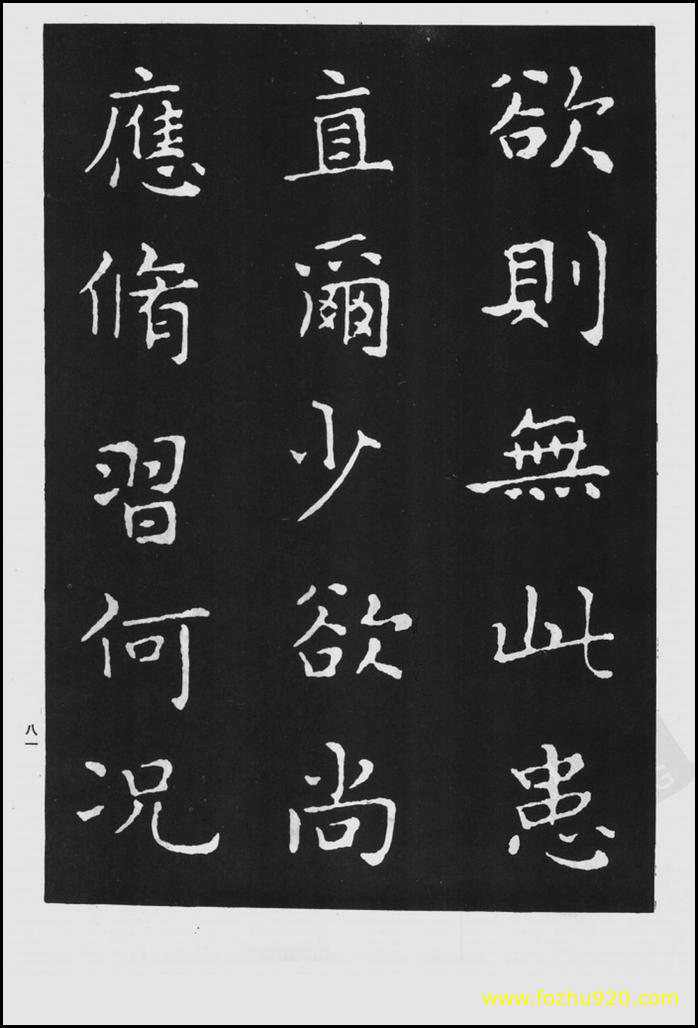 欲則無此患
直爾少欲尚
應脩習何况
八一
www.fozhu920.com